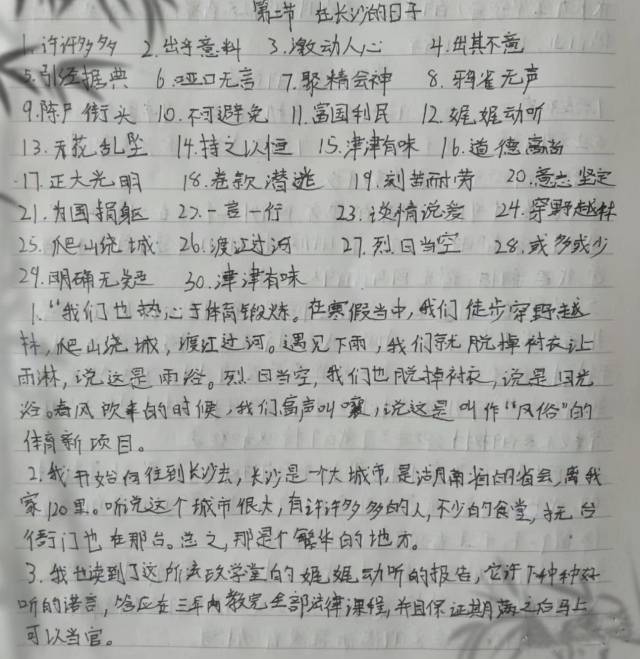 第二节 在长沙的日子
1.许许多多 2.出乎意料 3.激动人心 4.出其不意
5.引经据典 6.哑口无言 7.聚精会神 8.鸦雀无声
9.陈尸街头 10.不可避免 11.富国利民 12.娓娓动听
13.天花乱坠 14.持之以恒 15.津津有味 16.道德高尚
17.正大光明 18.卷款潜逃 19.刻苦耐劳 20.意志坚定
21.为国捐躯 22.一言一行 23.谈情说爱 24.穿野越林
25.爬山绕城 26.渡江过河 27.烈日当空 28.或多或少
29.明确无疑 30.津津有味
1、“我们也热心于体育锻炼。在寒假当中,我们徒步穿野越
林,爬山绕城,渡江过河。遇见下雨,我们就脱掉衬衣让
雨淋,说这是雨浴。烈日当空,我们也脱掉衬衣,说是日光
浴。春风吹来的时候,我们高声叫嚷,说这是叫作“风浴”的
体育新项目。
2.我开始向往到长沙去,长沙是一个大城市,是湖南省的省会,离我
家120里。听说这个城市很大,有许许多多的人,不少的食堂,抚台
衙门也在那台。总之,那是个繁华的地方。
3.我也读到了这所法政学堂的娓娓动听的报告,它许下种种好
听的诺言,答应在三年内教完全部法律课程,并且保证期满之后马上
可以当官。